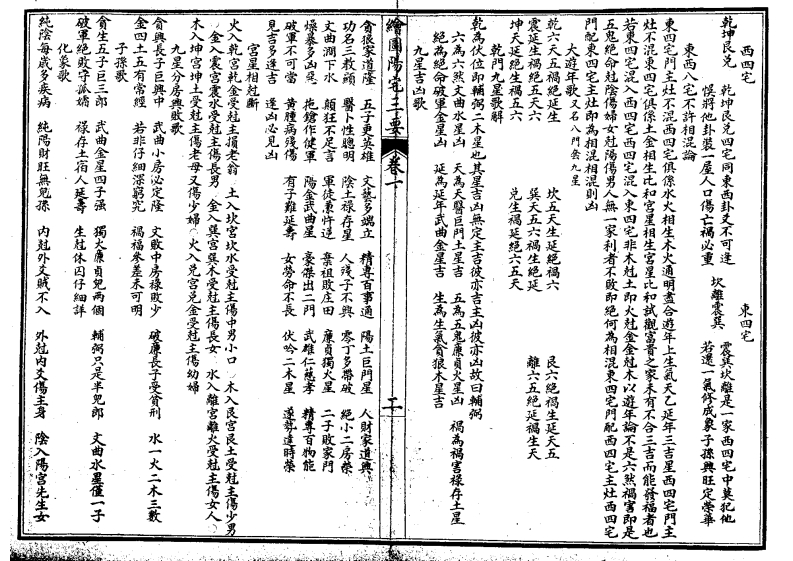 西四宅　東四宅
乾坤艮兌　乾坤艮兌四宅同東西卦爻不可逢　坎離震巽　震巽坎離是一家西四宅中莫犯他
悮將他卦裝一屋人口傷亡禍必重　若還一氣修成象子孫興旺定榮華
東西八宅不許相混論
東四宅門主灶不混西四宅俱係水火相生木火通明盡合遊年上生氣天乙延年三吉星西四宅門主
灶不混東四宅俱係土金相生比和宮星相生宮星比和試觀富貴之家未有不合三吉而能發福者也
若東四宅混入西四宅西四宅混入東四宅非木尅土即火尅金金尅木以遊年論不是六然禍害即是
五鬼絕命尅陰傷婦女尅陽傷男人無一家利者不敗即絕何為相混東四宅門配西四宅主灶西四宅
門配東四宅主灶即為相混相混則凶
大遊年歌又名八門套九星
乾六天五禍絕延生　坎五天生延絕禍六　艮六絕禍生延天五
震延生禍絕五天六　巽天五六禍生絕延　離六五絕延禍生天
坤天延絕生禍五六　兌生禍延絕六五天
乾門九星歌解
乾為伏位即輔弼二木星也其星吉凶無定主吉彼亦吉主凶彼亦凶故曰輔弼
六為六然文曲水星凶　天為天醫巨門土星吉　五為五鬼廉貞火星凶　禍為禍害祿存土星
絕為絕命破軍金星凶　延為延年武曲金星吉　生為生氣貪狼木星吉
九星吉凶歌
繪圖陽宅三要　卷一　二
貪狼家道隆　五子更英雄　文藝多端立　精專百事通　陽土巨門星　人財家道興
功名三教顯　醫卜性聰明　陰土祿存星　人殘子不興　零丁多帶破　絕小二房榮
文曲澗下水　顛狂不足言　軍徒兼忤逆　棄祖敗庄田　廉貞獨火星　二子敗家門
燥暴多凶惡　拖鎗作健軍　陽金武曲星　豪傑出二門　武雄仁慈孝　精專百物能
破軍不可當　黃腫病殘傷　有子難延壽　女勞命不長　伏吟二木星　遵勢達時榮
見吉多逢吉　逢凶必見凶
宮星相尅斷
火入乾宮乾金受尅主損老翁　土入坎宮坎水受尅主傷中男小口　木入艮宮艮土受尅主傷少男
金入震宮震木受尅主傷長男　金入巽宮巽木受尅主傷長女　水入離宮離火受尅主傷女人
木入坤宮坤土受尅主傷老母又傷少婦　火入兌宮兌金受尅主傷幼婦
九星分房興敗歌
貪興長子巨興中　武曲小房必定隆　文敗中房祿敗少　破廉長子受貧刑　水一火二木三數
金四土五有常經　若非仔細深窮究　禍福參差未可明
子孫歌
貪生五子巨三郎　武曲金星四子强　獨火廉貞兒兩個　輔弼只是半兒郎　文曲水星僅一子
破軍絕敗守孤孀　祿存土宿人延壽　生尅休囚仔細詳
化象歌
純陰每歲多疾病　純陽財旺無兒孫　內尅外爻賊不入　外尅內爻傷主身　陰入陽宮先生女